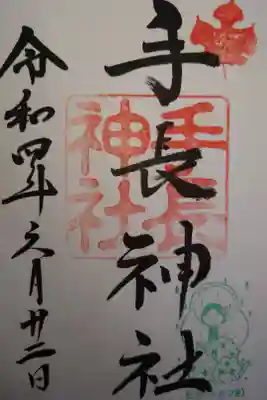 手長神社
手長
神社
令和四年六月廿二日